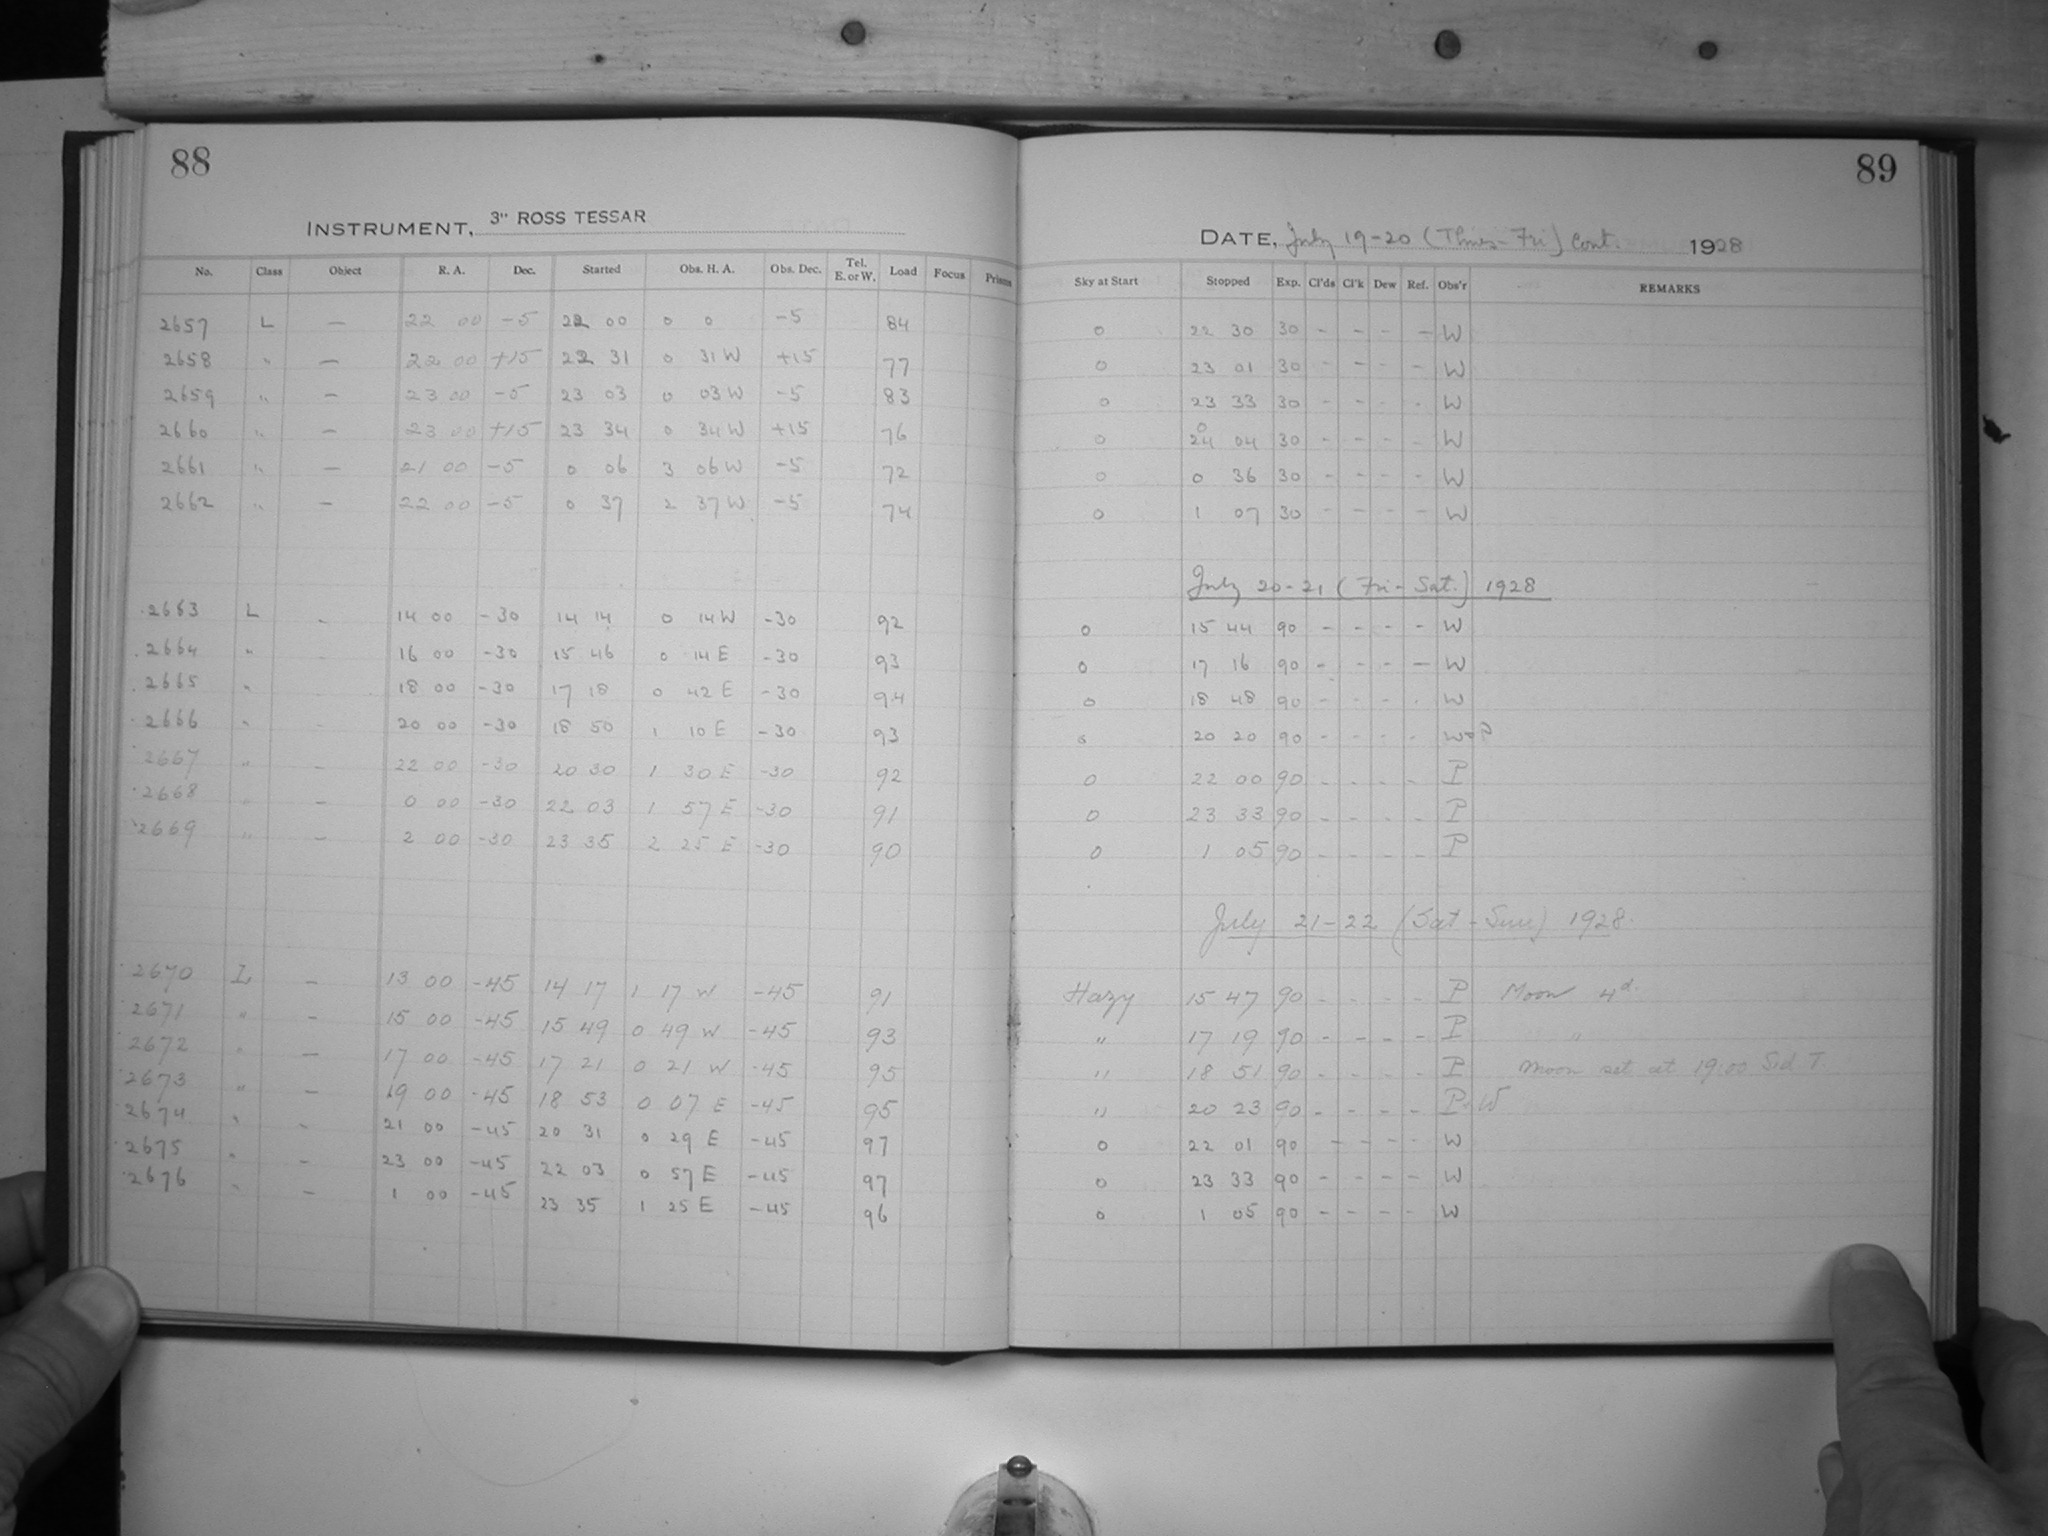 88
89
INSTRUMENT, 3" ROSS TESSAR
DATE, July 19-20 (Thurs-Fri) cont. 1928
No. Class Object R. A. Dec. Started Obs. H. A. Obs. Dec. Tel. E. or W. Load Focus Prisms Sky at Start Stopped Exp. Cl'ds Cl'k Dew Ref. Obs'r REMARKS
2657 L — 22 00 -5 22 00 0 0 -5 84 0 22 30 30 - - - - W
2658 " — 22 00 +15 22 31 0 31 W +15 77 0 23 01 30 - - - - W
2659 " — 23 00 -5 23 03 0 03 W -5 83 0 23 33 30 - - - - W
2660 " — 23 00 +15 23 34 0 34 W +15 76 0 24 0 04 30 - - - - W
2661 " — 21 00 -5 0 06 3 06 W -5 72 0 0 36 30 - - - - W
2662 " — 22 00 -5 0 37 2 37 W -5 74 0 1 07 30 - - - - W
July 20-21 (Fri-Sat.) 1928
2663 L - 14 00 -30 14 14 0 14 W -30 92 0 15 44 90 - - - - W
2664 " 16 00 -30 15 46 0 14 E -30 93 0 17 16 90 - - - - W
2665 " 18 00 -30 17 18 0 42 E -30 94 0 18 48 90 - - - - W
2666 " - 20 00 -30 18 50 1 10 E -30 93 s 20 20 90 - - - - W P
2667 " - 22 00 -30 20 30 1 30 E -30 92 0 22 00 90 - - - - P
2668 " - 0 00 -30 22 03 1 57 E -30 91 0 23 33 90 - - - - P
2669 " - 2 00 -30 23 35 2 25 E -30 90 0 1 05 90 - - - - P
July 21-22 (Sat-Sun) 1928.
2670 L — 13 00 -45 14 17 1 17 W -45 91 Hazy 15 47 90 - - - - P Moon 4d.
2671 " — 15 00 -45 15 49 0 49 W -45 93 " 17 19 90 - - - - P "
2672 " — 17 00 -45 17 21 0 21 W -45 95 " 18 51 90 - - - - P Moon set at 19:00 Sid T.
2673 " — 19 00 -45 18 53 0 07 E -45 95 " 20 23 90 - - - - P.W
2674 " - 21 00 -45 20 31 0 29 E -45 97 0 22 01 90 - - - - W
2675 " - 23 00 -45 22 03 0 57 E -45 97 0 23 33 90 - - - - W
2676 " - 1 00 -45 23 35 1 25 E -45 96 0 1 05 90 - - - - W